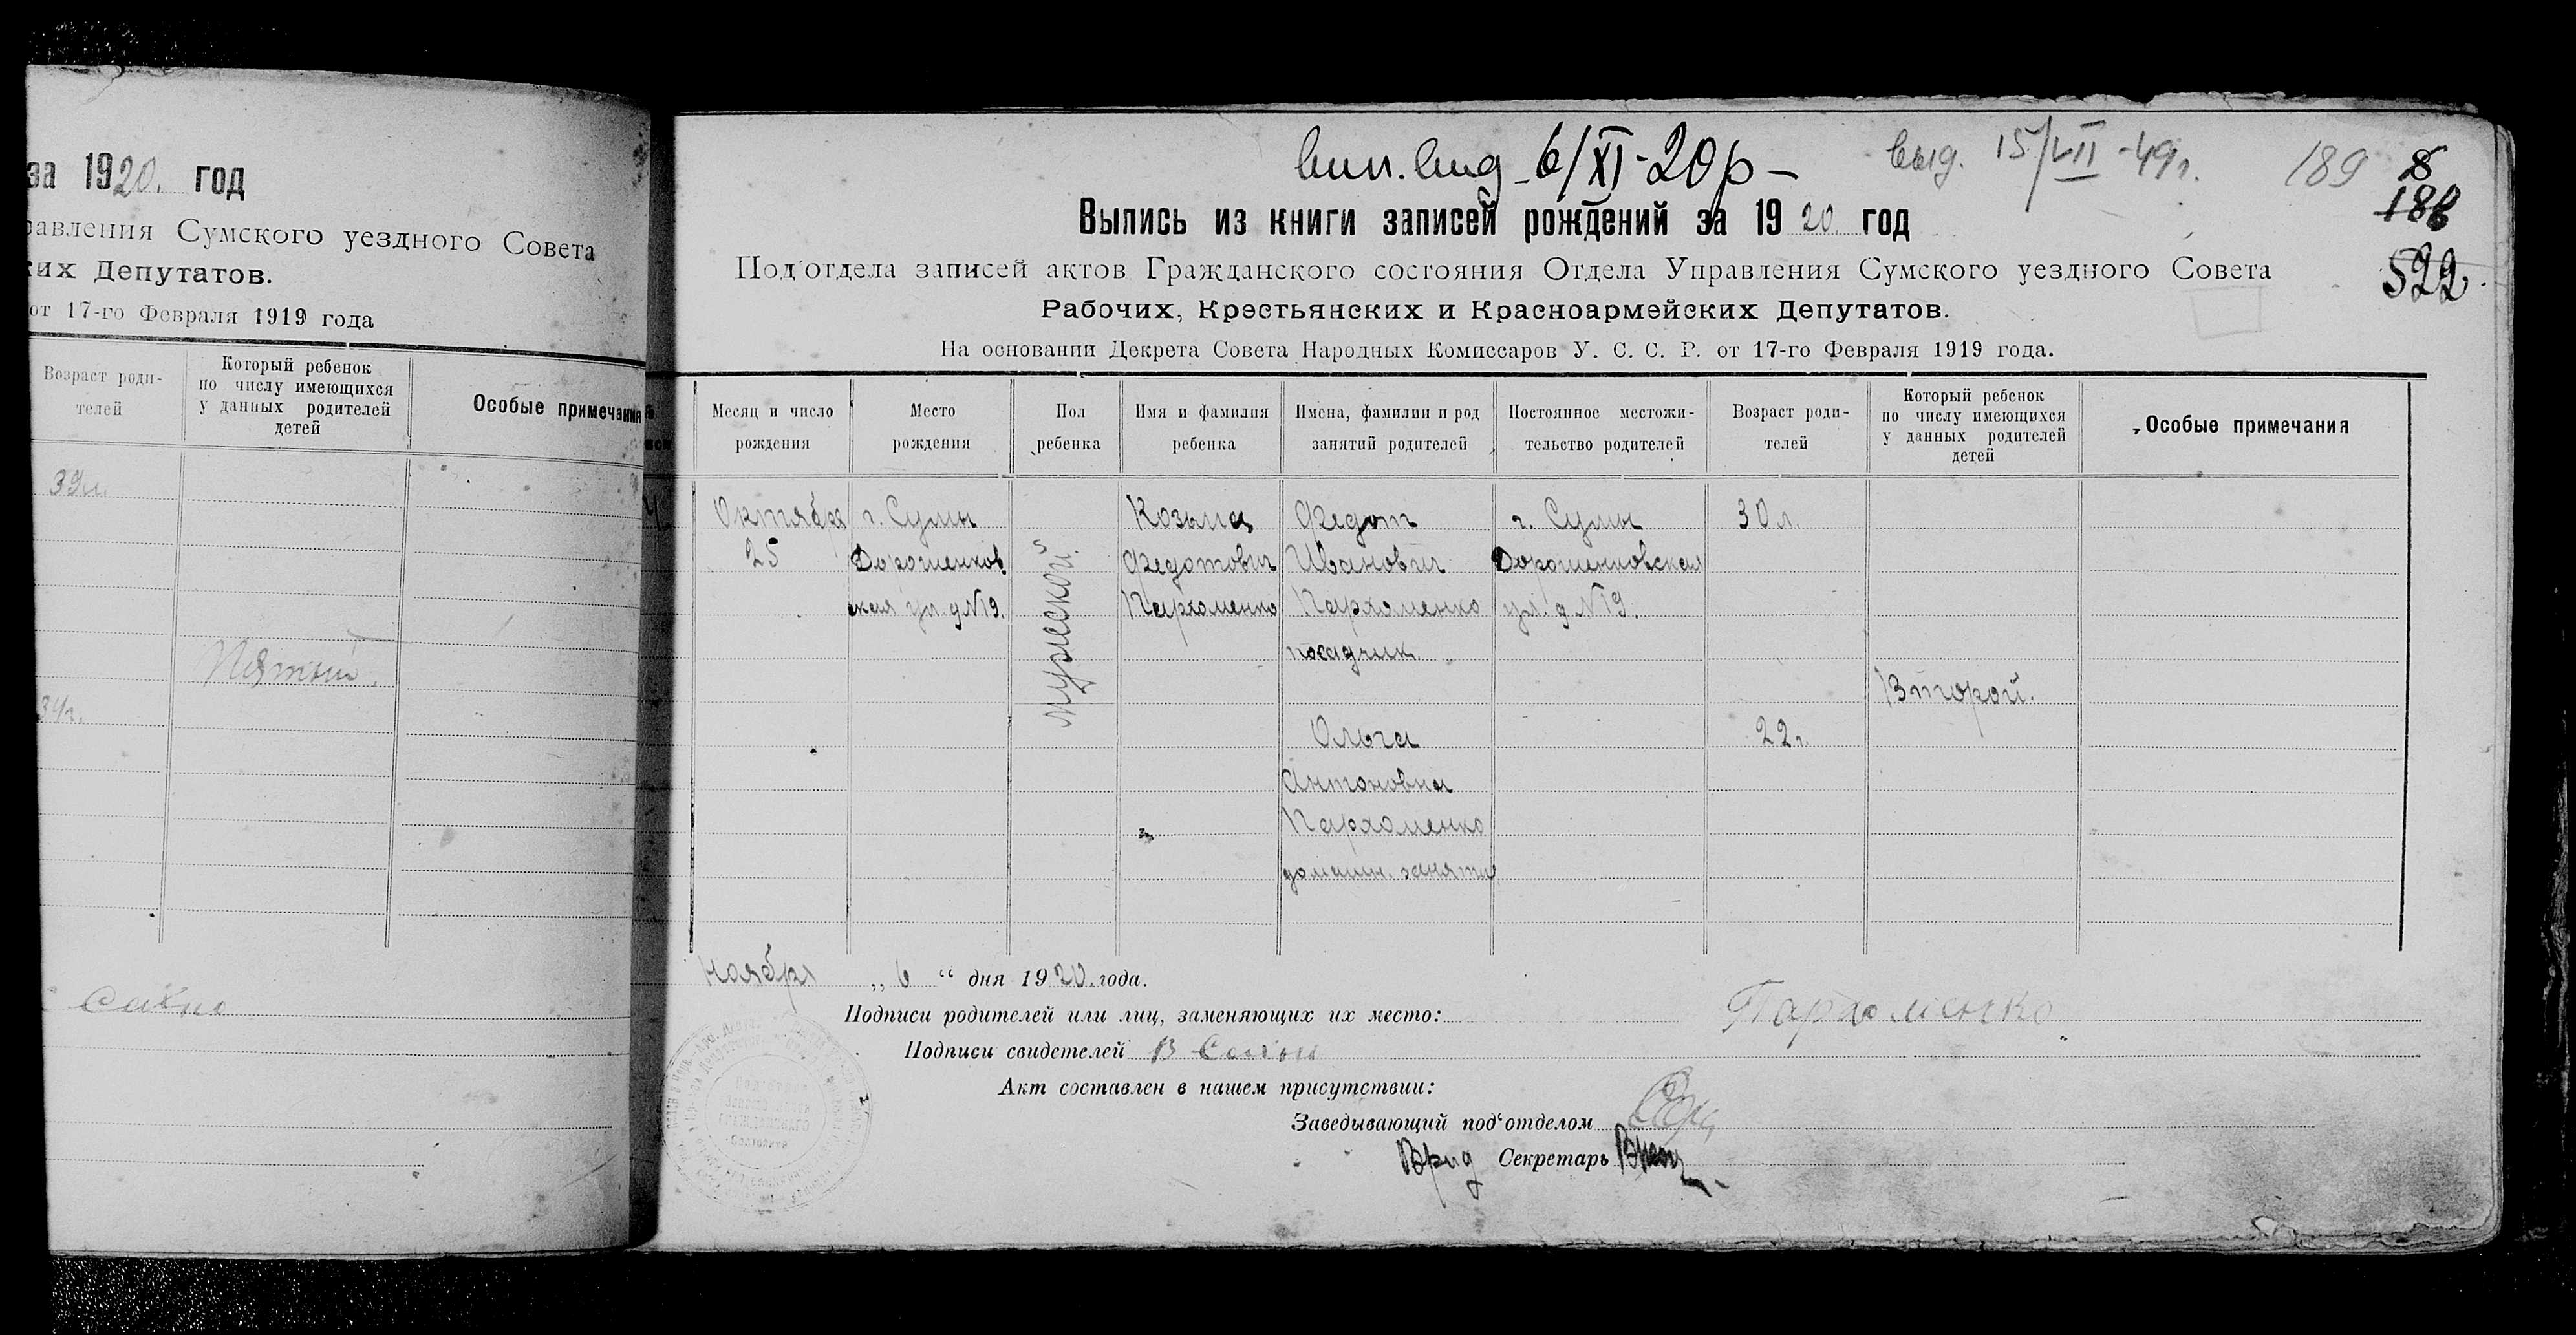 за 1920. год
равления Сумского уездного Совета
ких Депутатов.
от 17-го Февраля 1919 года
Возраст роди-
телей
Который ребенок
по числу имеющихся
у данных родителей
детей
Особые примечания
39 л.
Пятый.
34 г.
вип. вид 6/XI-20 р -
выд. 15/VII-49 г.
189
8
188
522.
Выпись из книги записей рождений за 1920 год
Под'отдела записей актов Гражданского состояния Отдела Управления Сумского уездного Совета
Рабочих, Крестьянских и Красноармейских Депутатов.
На основании Декрета Совета Народных Комиссаров У. С. С. Р. от 17-го Февраля 1919 года.
Месяц и число
рождения
Место
рождения
Пол
ребенка
Имя и фамилия
ребенка
Имена, фамилии и род
занятий родителей
Постоянное местожи-
тельство родителей
Возраст роди-
телей
Который ребенок
по числу имеющихся
у данных родителей
детей
Особые примечания
Октября
25
г. Сумы
Дорошенков
ская ул. д №19.
мужеской
Козьма
Федотович
Пархоменко
Федот
Иванович
Пархоменко
посадчик
Ольга
Антоновна
Пархоменко
домашн. заняти
г. Сумы
Дорошенковская
ул. д №19.
30 л
22 г.
Второй.
Ноября „ 6 “ дня 1920. года.
Подписи родителей или лиц, заменяющих их место: Пархоменко
Подписи свидетелей В
Акт составлен в нашем присутствии:
Заведывающий под'отделом
Врид Секретарь